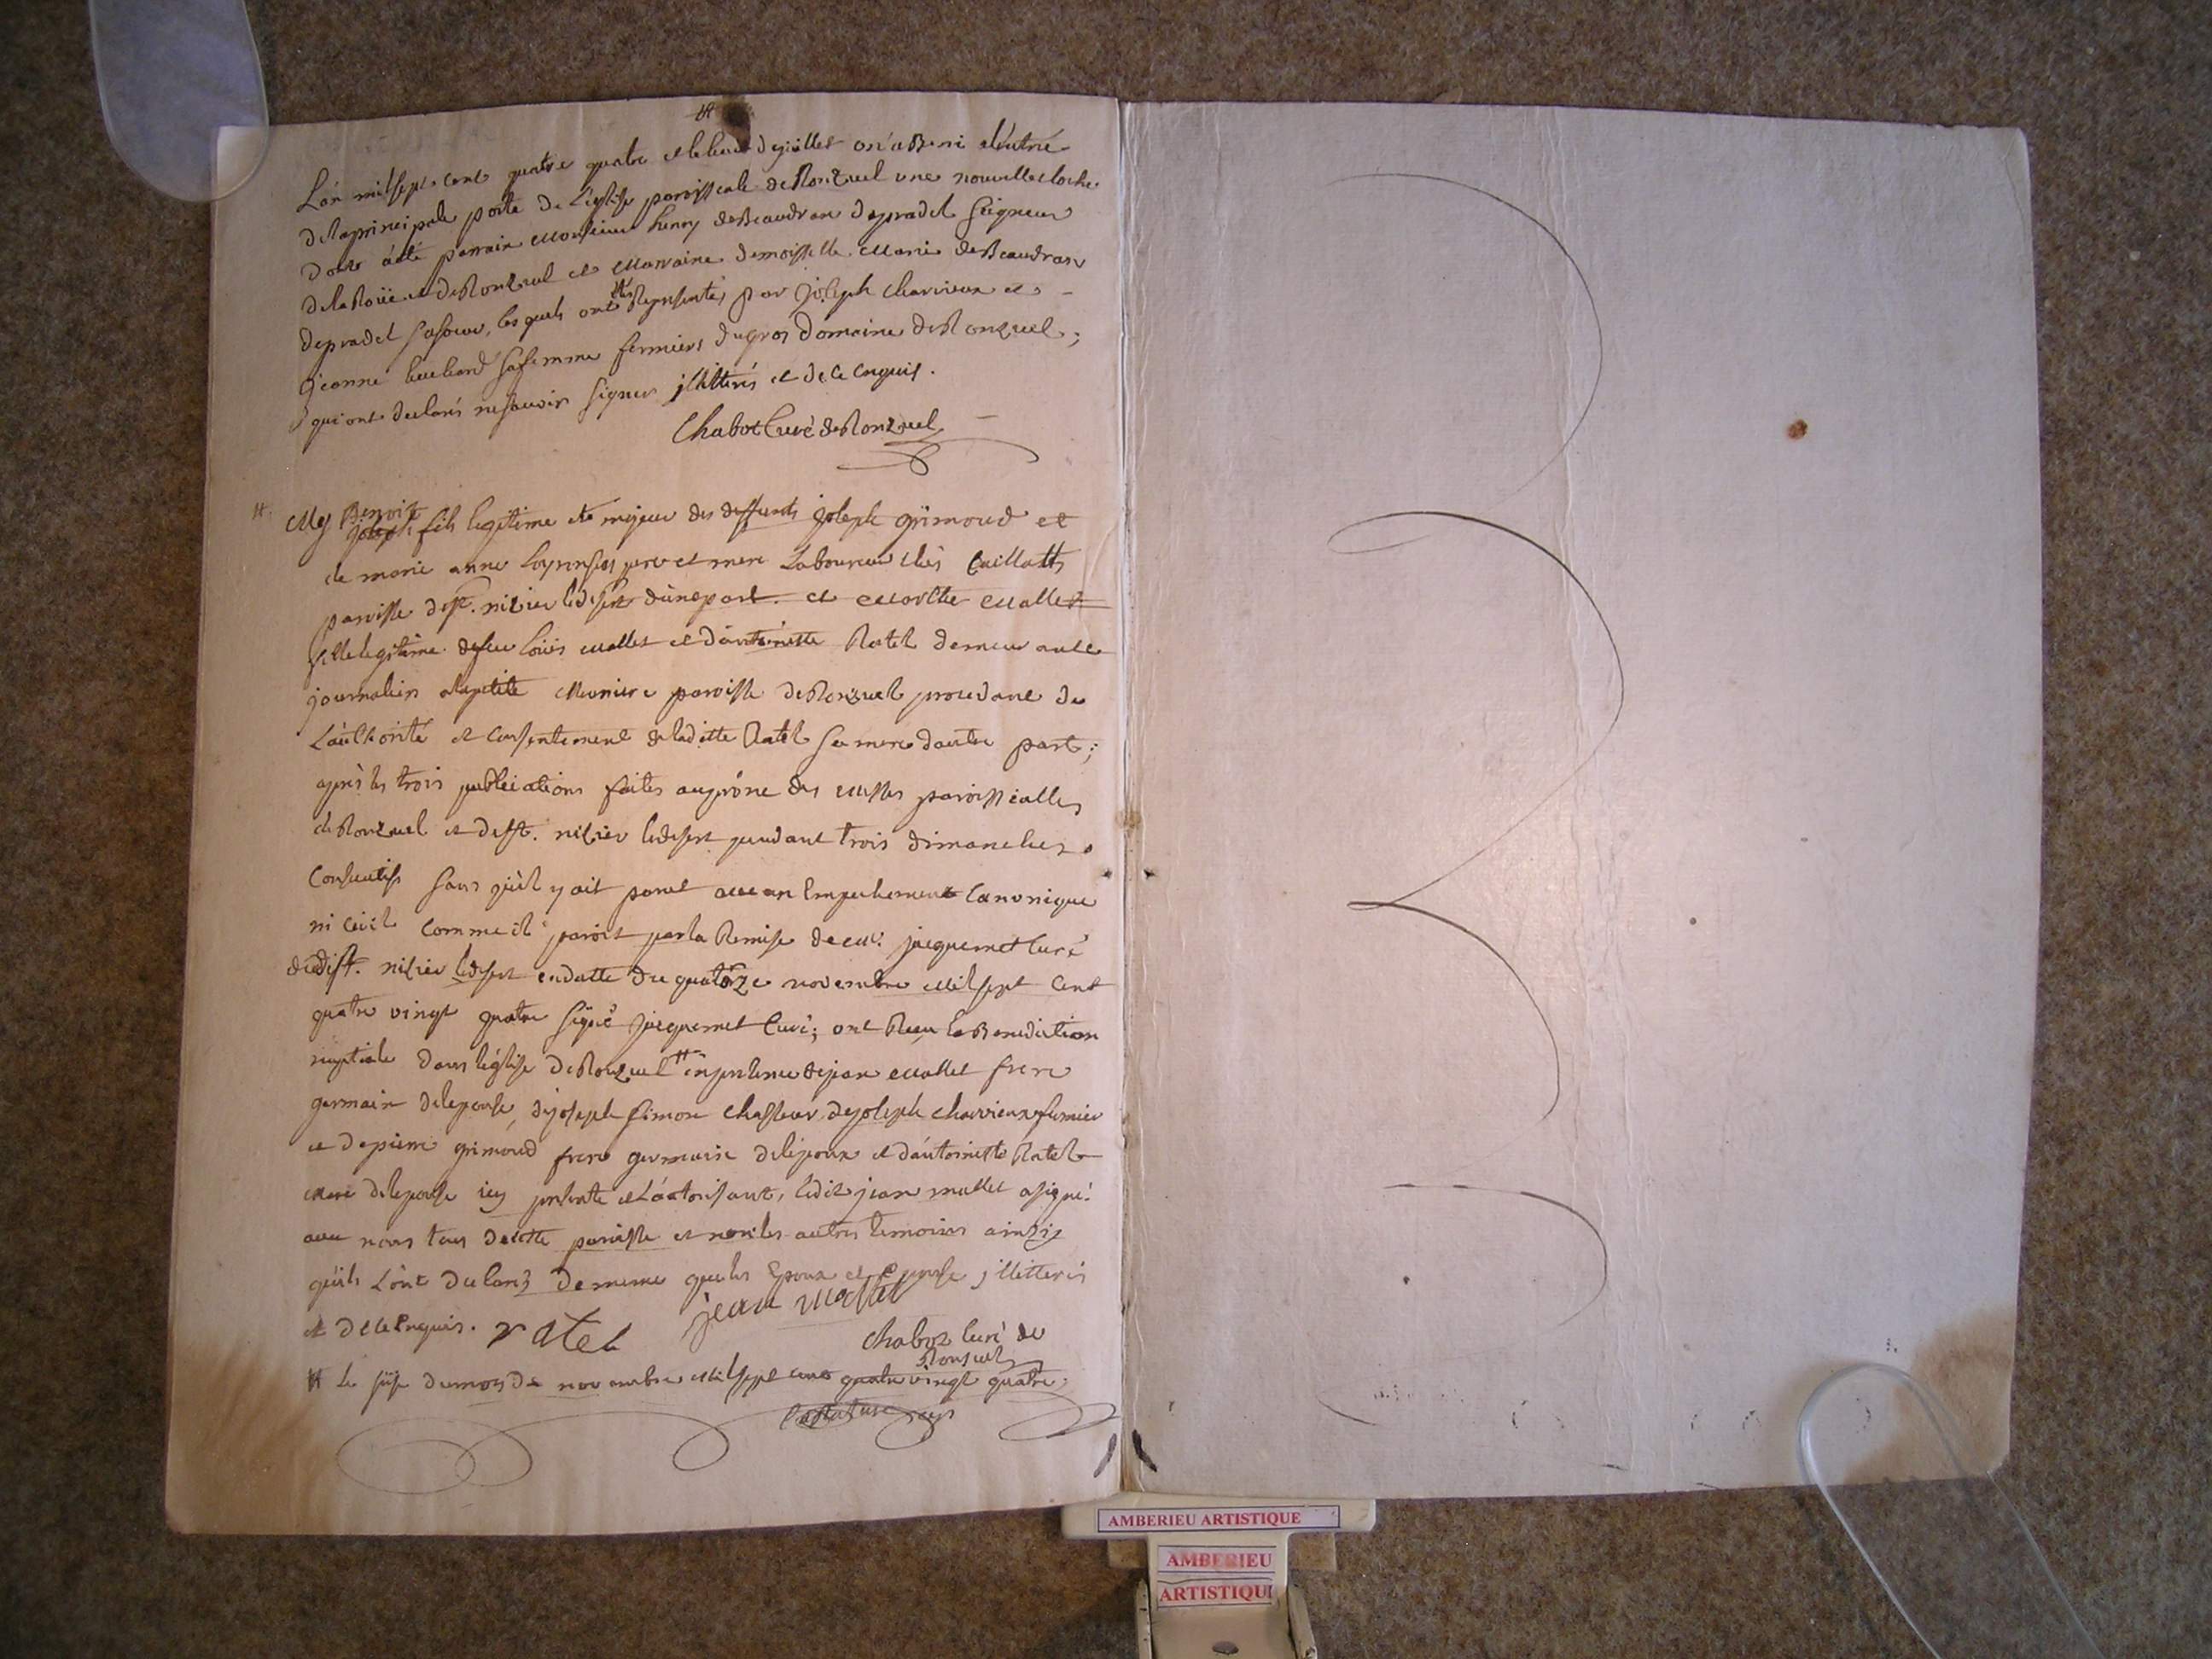 L'an mil sept cent quatre quatre et le huit de juillet on a Beni a l'entrée
de la principale porte de L'eglise paroissiale de Ronzuel une nouvelle cloche
dont a été parrain Monsieur henry de Beaudran de pradel Seigneur
de la Roüe et de Ronzuel et Marraine demoiselle Marie de Beaudran
de pradel sa soeur, les quels ont été Representés par Joseph charvieux et
jeanne sa femme fermiers du gros Domaine de Ronzuel;
qui ont declarés ne savoir signer jllitterés et de ce enquis.
Chabot Curé de Ronzuel
Benoit
fils legitime et majeur des deffunts joseph grimoud et
de marie anne pere et mere Laboureur chés Caillatts
paroisse de st. nizier le desert d'une part. et Marthe Mallet
fille legitime de feu Loüis Mallet et d'antoinette Ratel demeurante
journaliere a la petite Meuniere paroisse de Ronzuel procedant de
L'authorité et consentement de la ditte Ratel sa mere d'autre part;
après les trois publications faites au prône des Messes paroissialles
de Ronzuel et de st. nizier le desert pendant trois dimanches
Consecutifs sans qu'il y ait parut aucun Empechement Canonique
ni Civil comme il paroit par la Remise de mr. jacquemet curé
dudit st. nizier le desert en datte du quatorze novembre Mil sept Cent
quatre vingt quatre signé jacquemet Curé; ont Reçu la Benediction
nuptiale dans l'église de Ronzuel en presence de jean Mallet frere
germain de l'epouse, de joseph simon chasseur, de joseph charvieux fermier
et de pierre grimoud frere germain de l'epoux et d'antoinette Ratel
mere de l'epouse icy presente et L'autorisant, ledit jean mallet a signé
avec nous tous de cette paroisse et non les autres temoins ainsi
qu'ils L'ont declarés de meme que les Epoux et Epouse jllitterés
et de ce Enquis. ratel jean mallet
Chabot Curé de
Ronzuel
le du mois de novembre Mil sept cent quatre vingt quatre
AMBERIEU ARTISTIQUE
AMBERIEU
ARTISTIQU